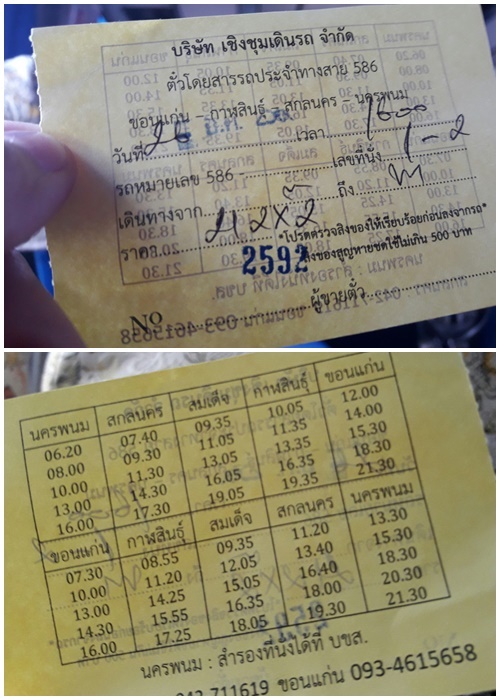 บริษัท เชิงชุมเดินรถ จำกัด
ตั๋วโดยสารรถประจำทางสาย 586
ขอนแก่น - กาฬสินธุ์ - สกลนคร - นครพนม
วันที่ 26 เวลา
รถหมายเลข 586 - เลขที่นั่ง 1-2
เดินทางจาก ถึง
ราคา 212x2 *โปรดตรวจสิ่งของให้เรียบร้อยก่อนลงจากรถ*
2592 สิ่งของสูญหายชดใช้ไม่เกิน 500 บาท
No ผู้ขายตั๋ว
นครพนม สกลนคร สมเด็จ กาฬสินธุ์ ขอนแก่น
06.20 07.40 09.35 10.05 12.00
08.00 09.30 11.05 11.35 14.00
10.00 11.30 13.05 13.35 15.30
13.00 14.30 16.05 16.35 18.30
16.00 17.30 19.05 19.35 21.30
ขอนแก่น กาฬสินธุ์ สมเด็จ สกลนคร นครพนม
07.30 08.55 09.35 11.20 13.30
10.00 11.20 12.05 13.40 15.30
13.00 14.25 15.05 16.40 18.30
14.30 15.55 16.35 18.00 20.30
16.00 17.25 18.05 19.30 21.30
นครพนม : สำรองที่นั่งได้ที่ บขส.
042 711619 ขอนแก่น 093-4615658